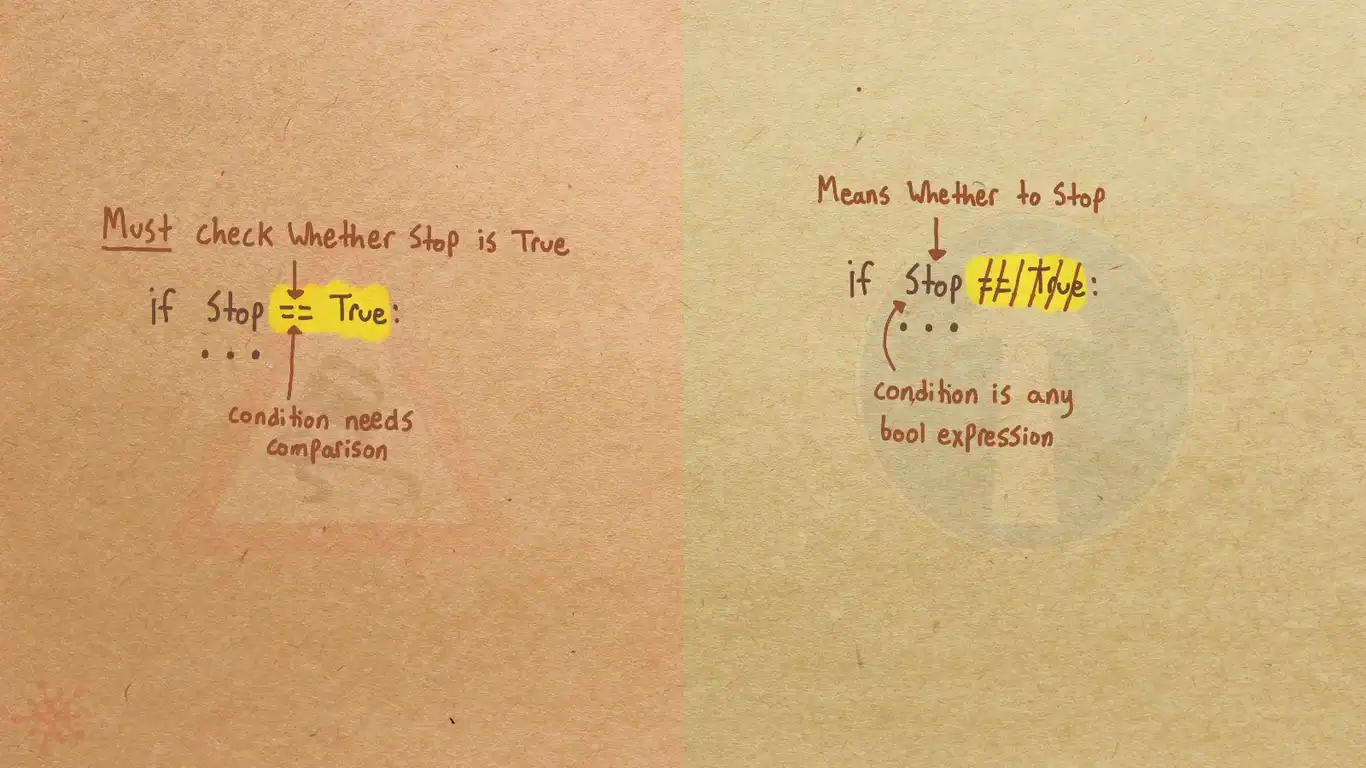 Must check Whether Stop is True
if Stop == True:
...
condition needs
comparison
Means Whether to Stop
if Stop == True:
...
condition is any
bool expression